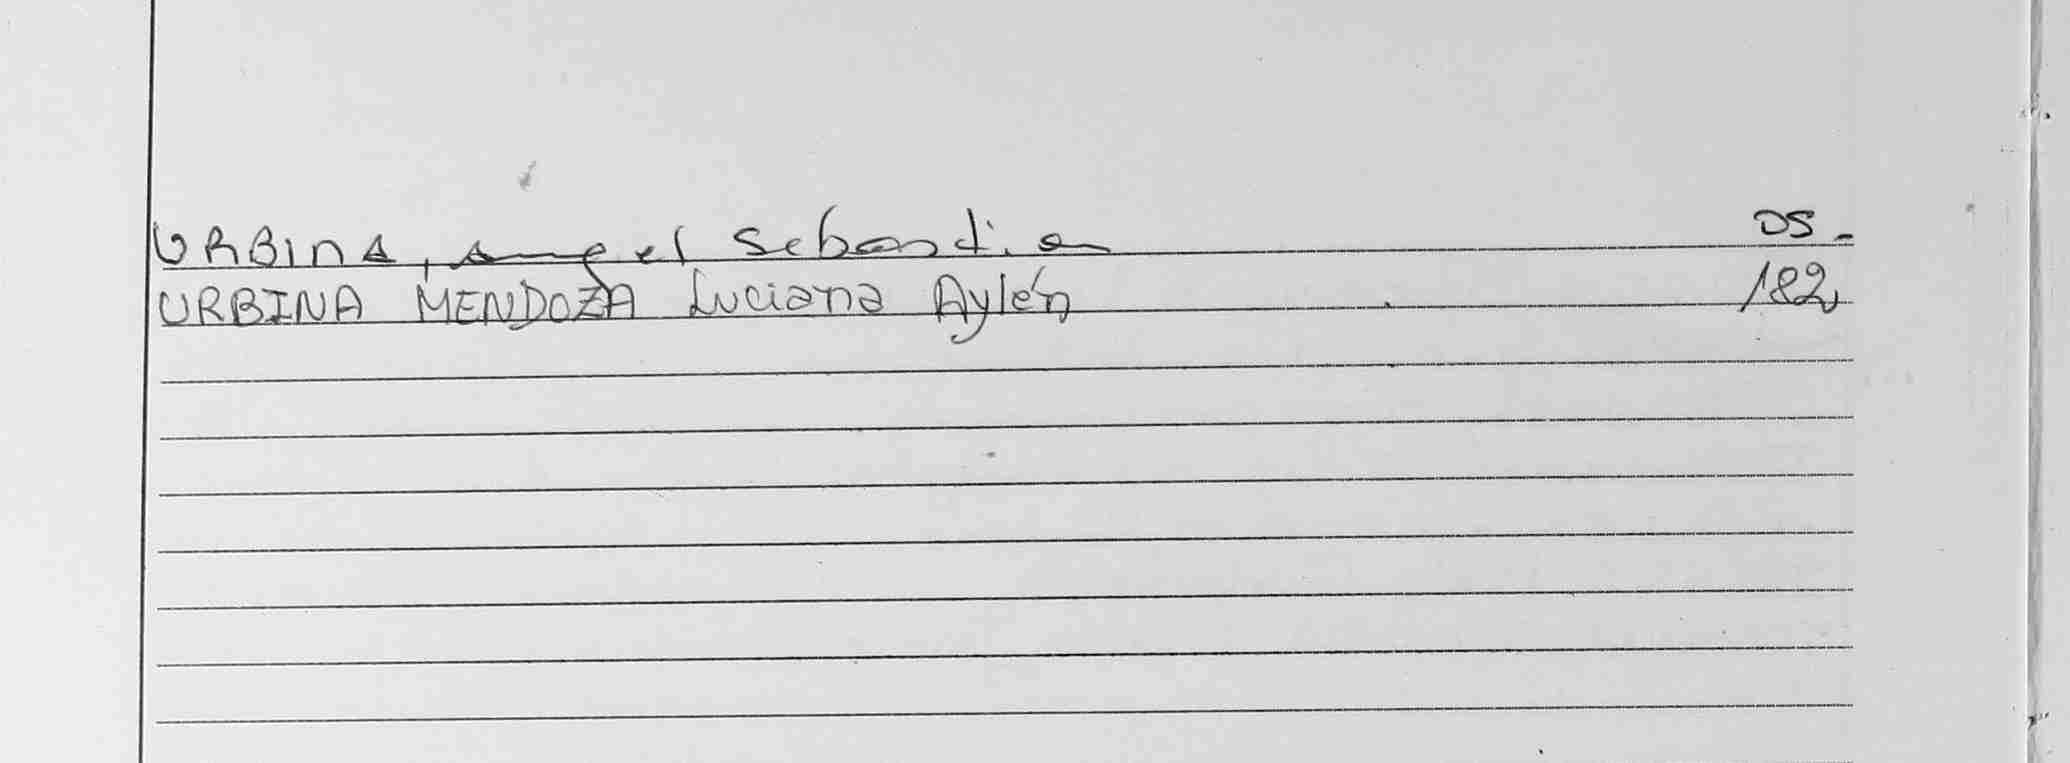 URBINA, Angel Sebastian 05-
URBINA MENDOZA Luciana Aylén 182